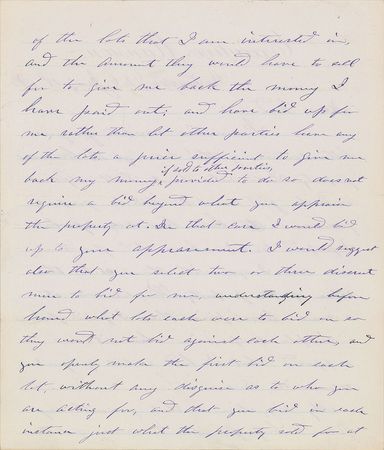 of the lots that I am interested in,
and the amount they would have to sell
for to give me back the money I
have paid out; and have bid up for
me, rather than let other parties have any
of the lots, a price sufficient to give me
if sold to other parties,
back my money, provided to do so does not
require a bid beyond what you appraise
the property at. In that case I would bid
up to your appraisement. I would suggest
also that you select two or three discreet
men to bid for me, understanding before
hand what lots each were to bid on so
they would not bid against each other, and
you openly make the first bid on each
lot, without any disguise as to who you
are acting for, and that you bid in each
instance just what the property sold for at